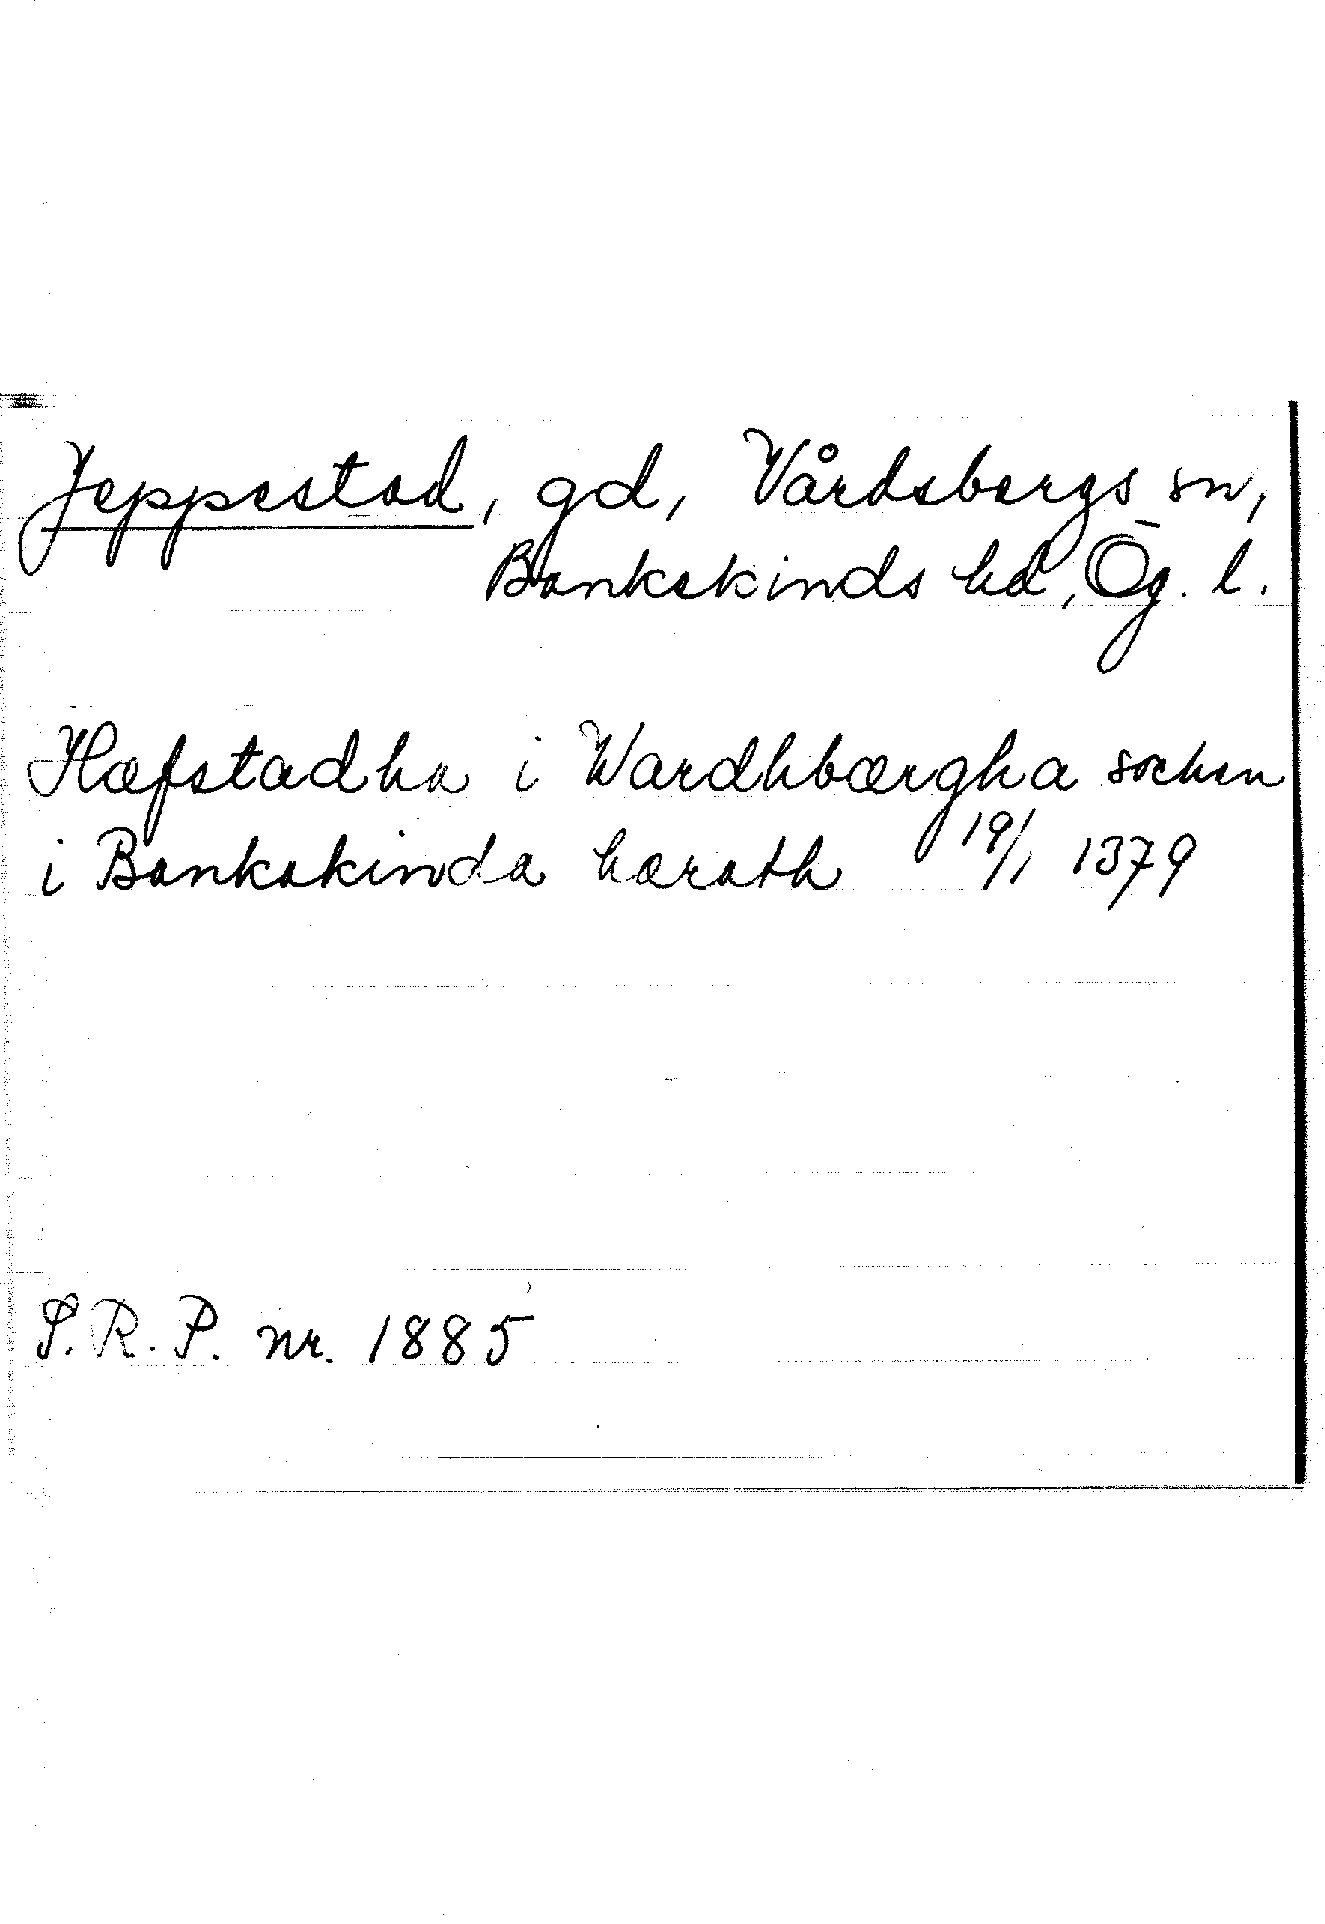 Jeppestad, gd, Vårdsbergs sn,
Bankekinds hd, Ög. l.
Hæfstadha i Wardhbærgha sochen
i Bankakinda hærath 19/1 1379
S.R.P. nr. 1885